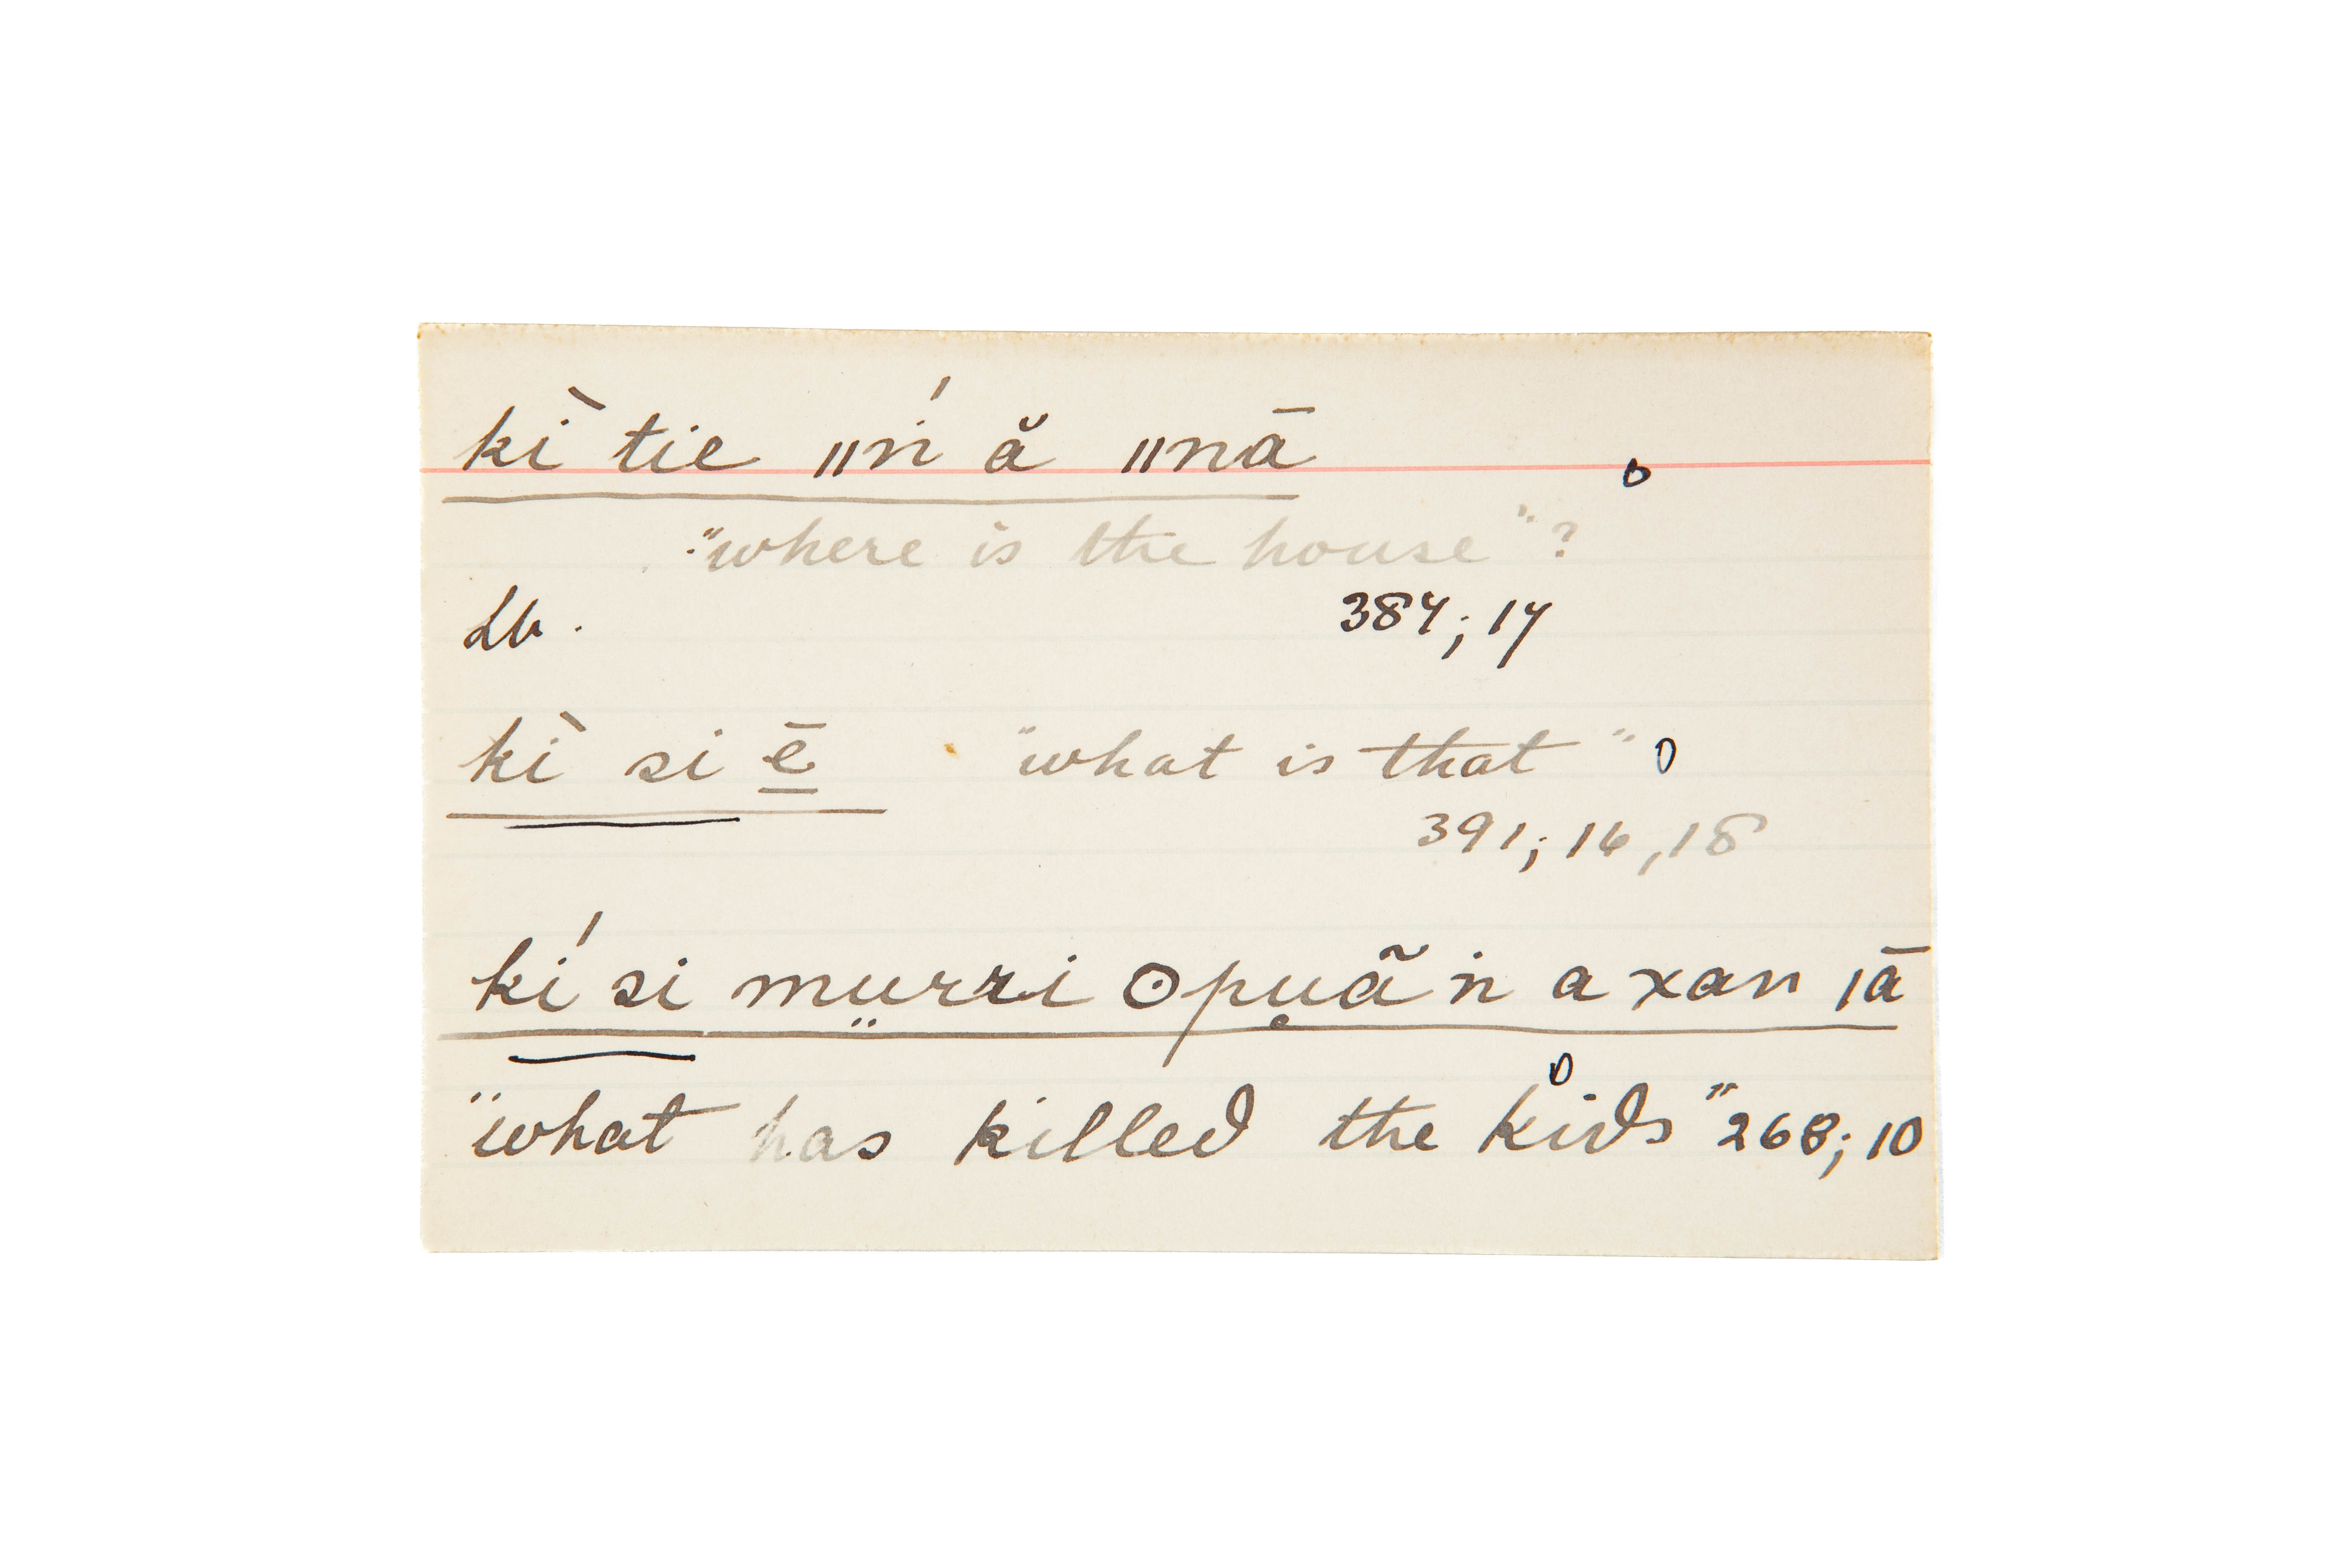 kì tie ǁṅ́ ă ǁnā
"where is the house"?
Lb. 384; 14
kì si ē̳ "what is that"
391; 16, 18
kí si mṳrri ʘpu̥ãṅ a xan ǀā
"what has killed the kids" 268; 10